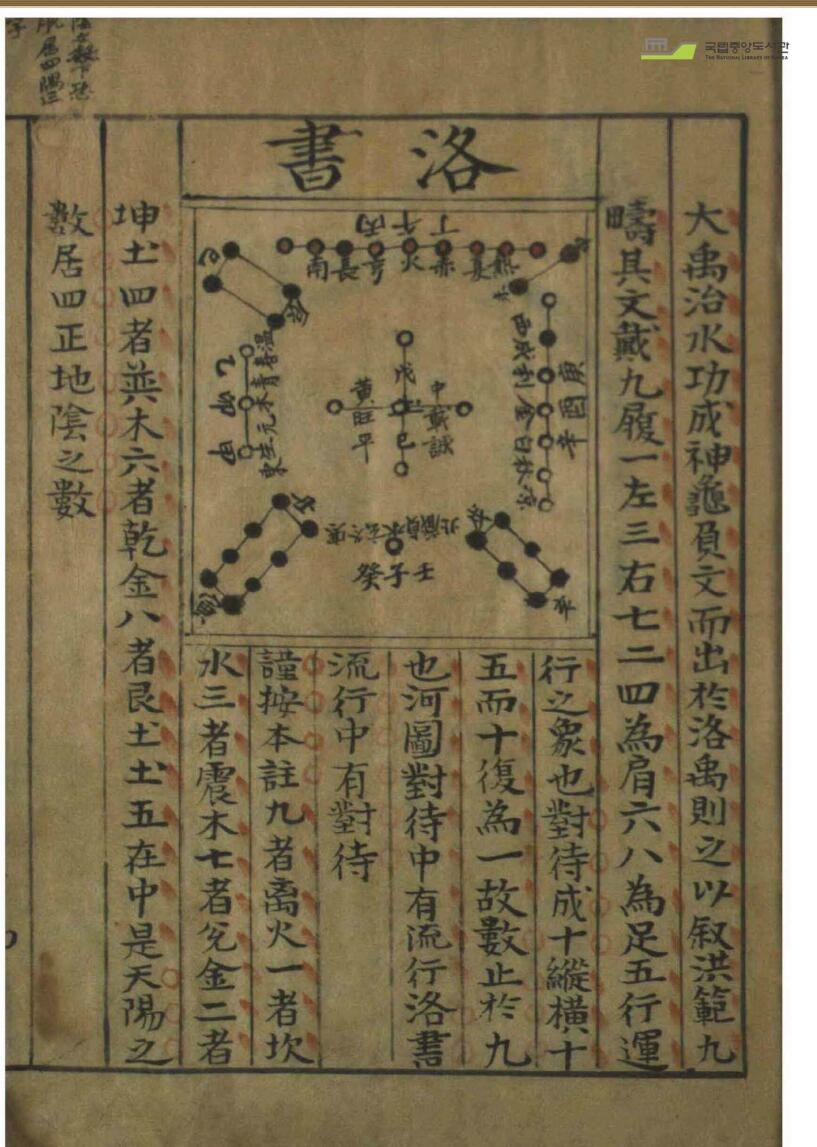 洛書
大禹治水功成神龜負文而出於洛禹則之以叙洪範九
疇其文戴九履一左三右七二四為肩六八為足五行運
行之象也對待成十縱橫十
五而十復為一故數止於九
也河圖對待中有流行洛書
流行中有對待
謹按本註九者离火一者坎
水三者震木七者兌金二者
坤土四者巽木六者乾金八者艮土土五在中是天陽之
數居四正地陰之數
丁午丙
南長亨火赤夏熱
庚酉辛
西成利金白秋涼
溫春青木元生東
乙卯甲
戊己
黃旺平
中
癸子壬
北藏貞水玄冬寒
국립중앙도서관
THE NATIONAL LIBRARY OF KOREA